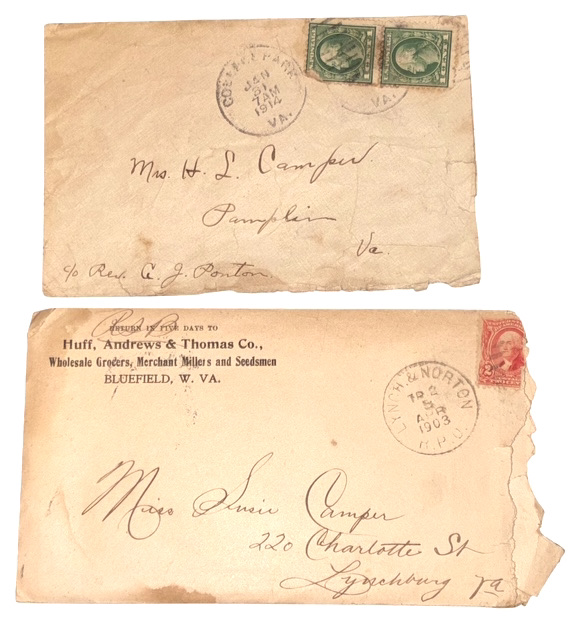 COLLEGE PARK
JAN
31
7AM
1914
VA.
VA.
Mrs. H. L. Camper.
Pamplin
Va.
c/o Rev. G. J. Ponton.
RETURN IN FIVE DAYS TO
Huff, Andrews & Thomas Co.,
Wholesale Grocers, Merchant Millers and Seedsmen
BLUEFIELD, W. VA.
2
LYNCH. & NORTON
TR
2
1903
R.P.O.
Miss Susie Camper
220 Charlotte St
Lynchburg Va